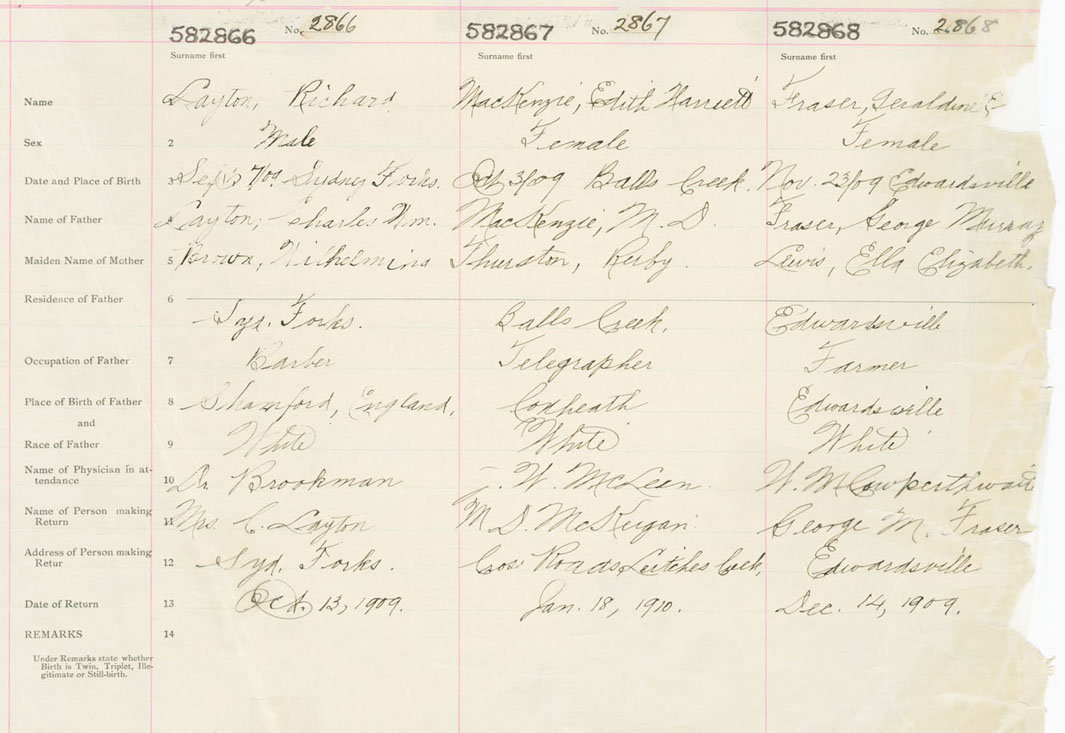 582866 No. 2866 582867 No. 2867 582868 No. 2868
Surname first Surname first Surname first
Name Layton, Richard MacKenzie, Edith Harriett Fraser, Geraldine E
Sex 2 Male Female Female
Date and Place of Birth 3 Sydney Forks. Oct 3/09 Balls Creek. Nov. 23/09 Edwardsville
Name of Father 4 Layton, Charles Wm. MacKenzie, M. D. Fraser, George Murray
Maiden Name of Mother 5 Brown, Wilhelmina Thurston, Lewis, Ella Elizabeth.
Residence of Father 6
Syd. Forks. Balls Creek. Edwardsville
Occupation of Father 7 Barber Telegrapher Farmer
Place of Birth of Father 8 England, Coxheath Edwardsville
and
Race of Father 9 White White White
Name of Physician in at-
tendance 10 Dr. Brookman J. W. McLean W. M. Cowperthwait
Name of Person making
Return 11 Mrs. C. Layton M. D. George M. Fraser
Address of Person making
Retur 12 Syd. Forks. Roads Leitches Edwardsville
Date of Return 13 Oct. 13, 1909. Jan. 18, 1910. Dec. 14, 1909.
REMARKS 14
Under Remarks state whether
Birth is Twin, Triplet, Ille-
gitimate or Still-birth.